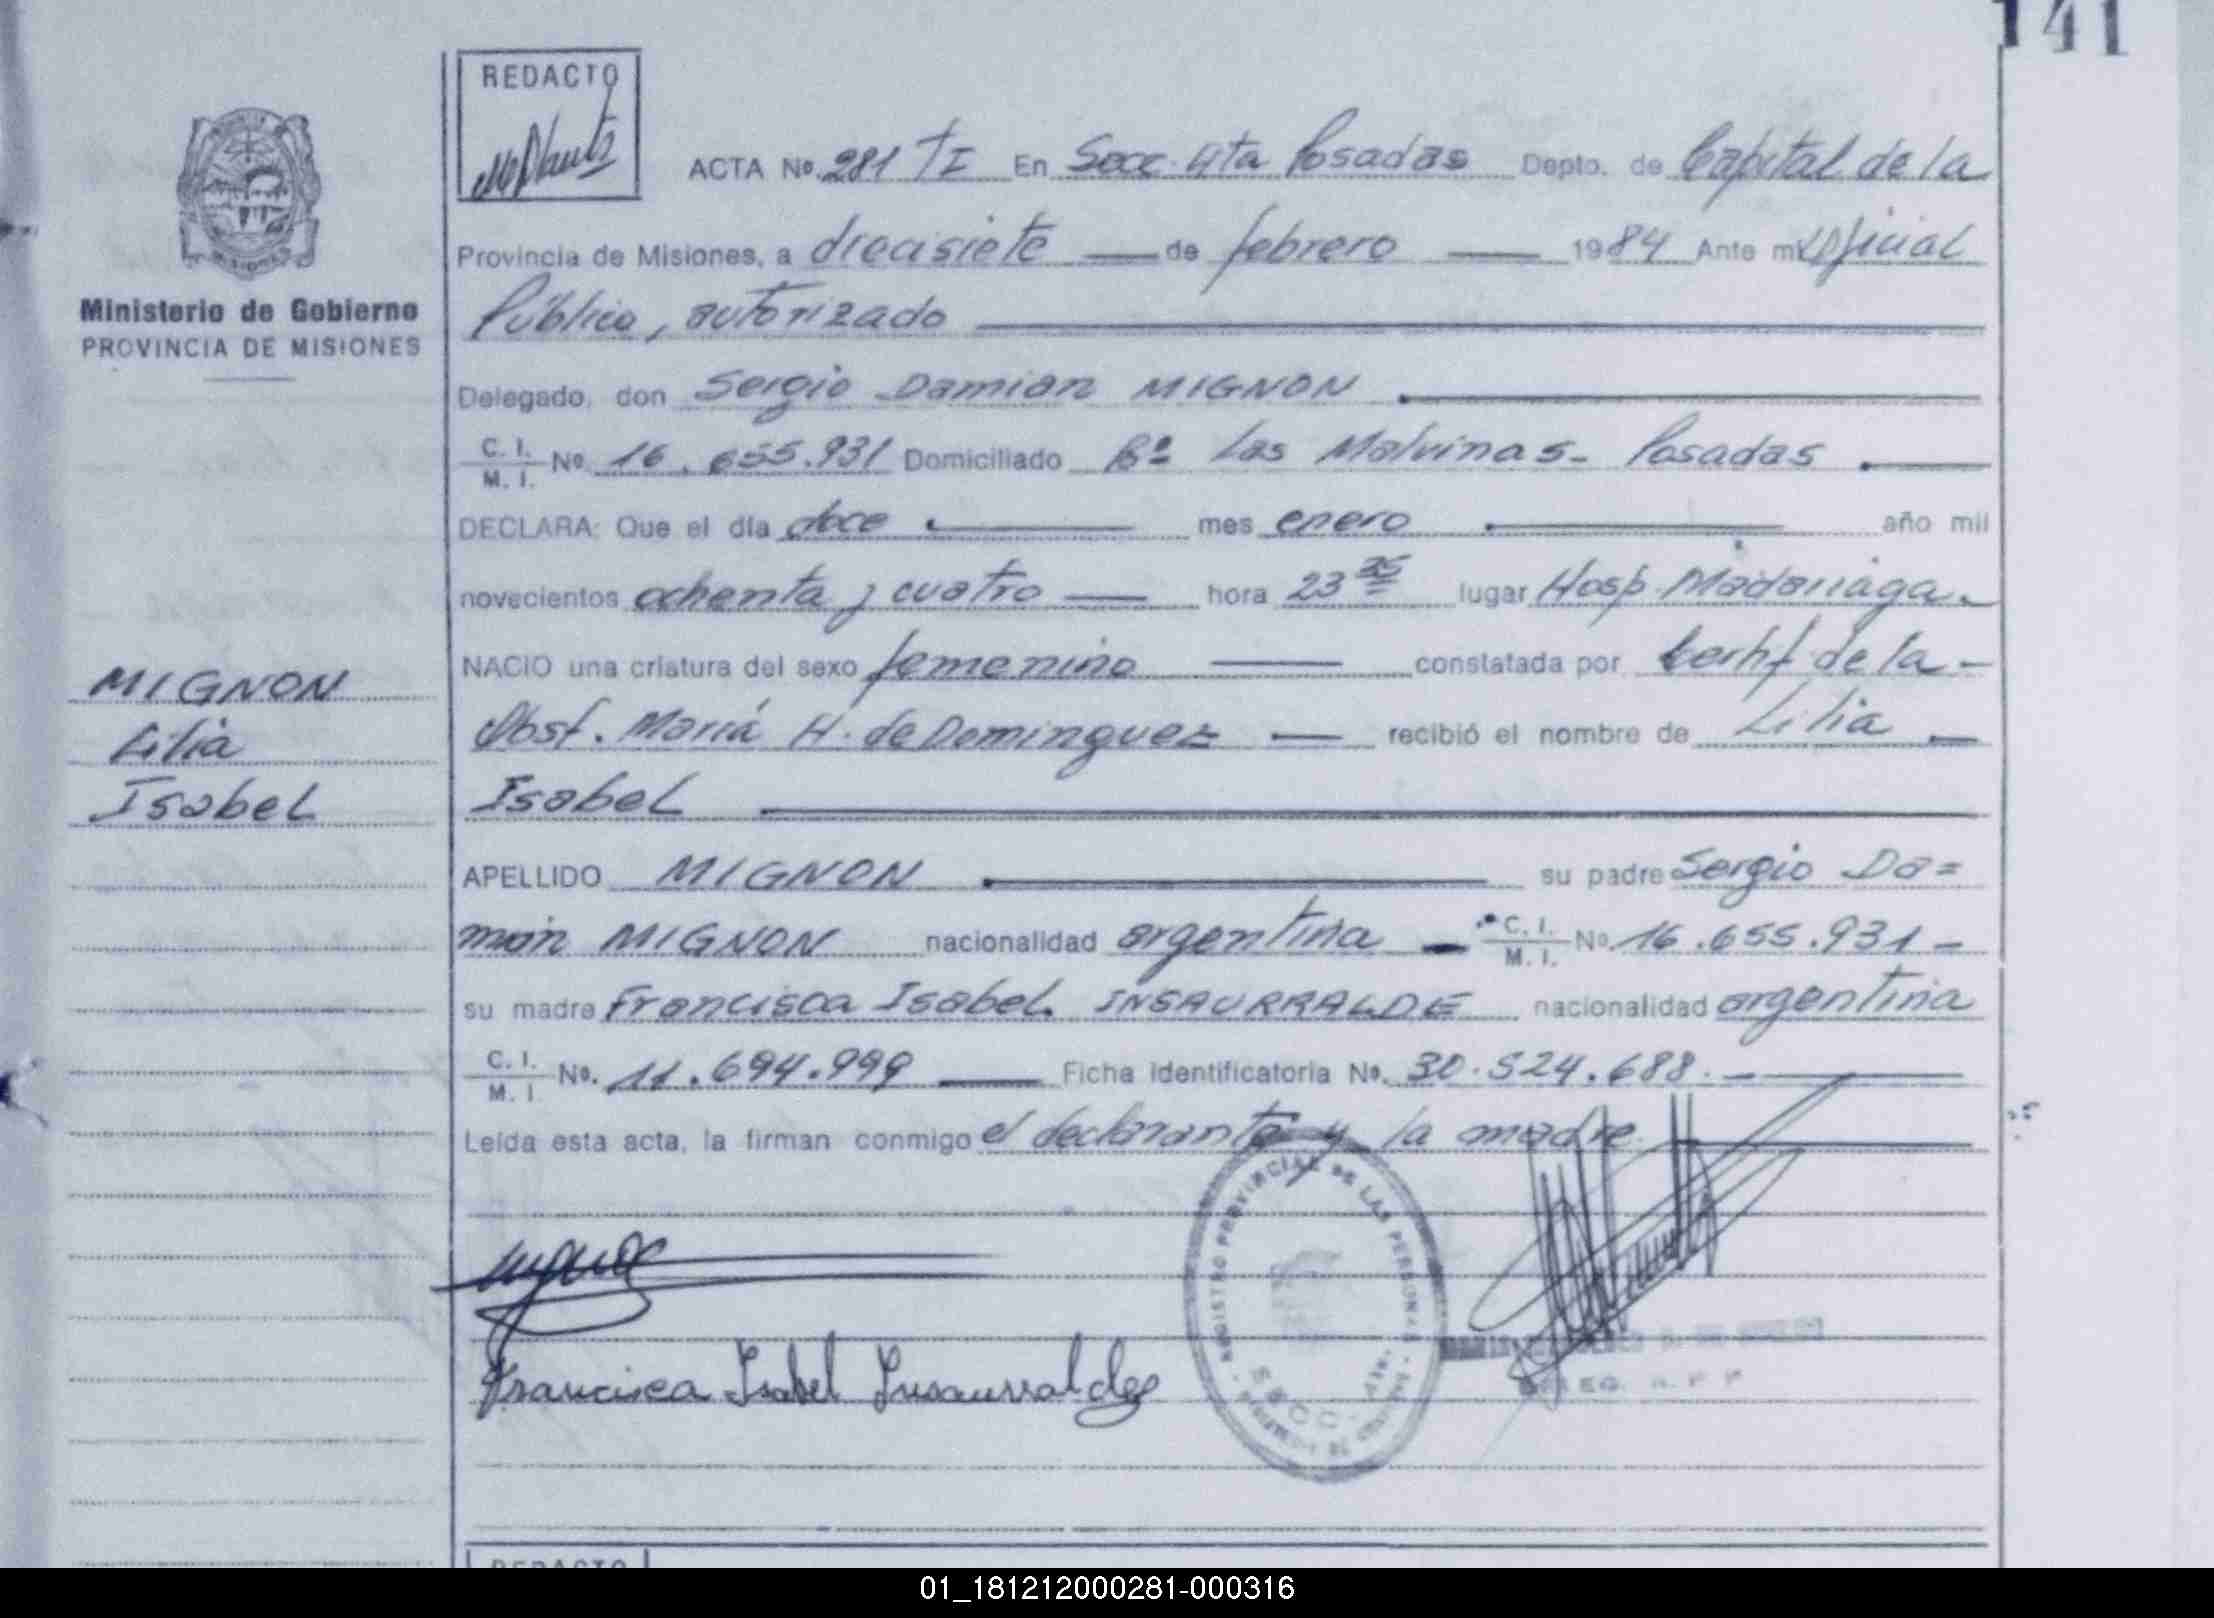 141
REDACTO
ACTA No. 281 TI En Secc. 4ta Posadas Depto. de Capital de la
Provincia de Misiones, a diecisiete de febrero 1984 Ante mi Oficial
Público, autorizado
Ministerio de Gobierno
PROVINCIA DE MISIONES
Delegado, don Sergio Damian MIGNON
C. I. M. I. No 16.655.931 Domiciliado Bº Las Malvinas - Posadas
DECLARA: Que el día doce mes enero año mil
novecientos ochenta y cuatro hora 23 35 lugar Hosp. Madariaga.
NACIO una criatura del sexo femenino constatada por Certif. de la
Obst. María H. de Dominguez recibió el nombre de Lilia
Isabel
MIGNON
Lilia
Isabel
APELLIDO MIGNON su padre Sergio Da=
mián MIGNON nacionalidad argentina C. I. M. I. No. 16.655.931
su madre Francisca Isabel INSAURRALDE nacionalidad argentina
C. I. M. I No. 11.694.999 Ficha Identificatoria No. 30.524.688.
Leída esta acta, la firman conmigo el declarante y la madre
REGISTRO PROVINCIAL DE LAS PERSONAS
SECC. 4ta.
Francisca Isabel Insaurralde
DELEG. R. P. P
REDACTO
01_181212000281-000316